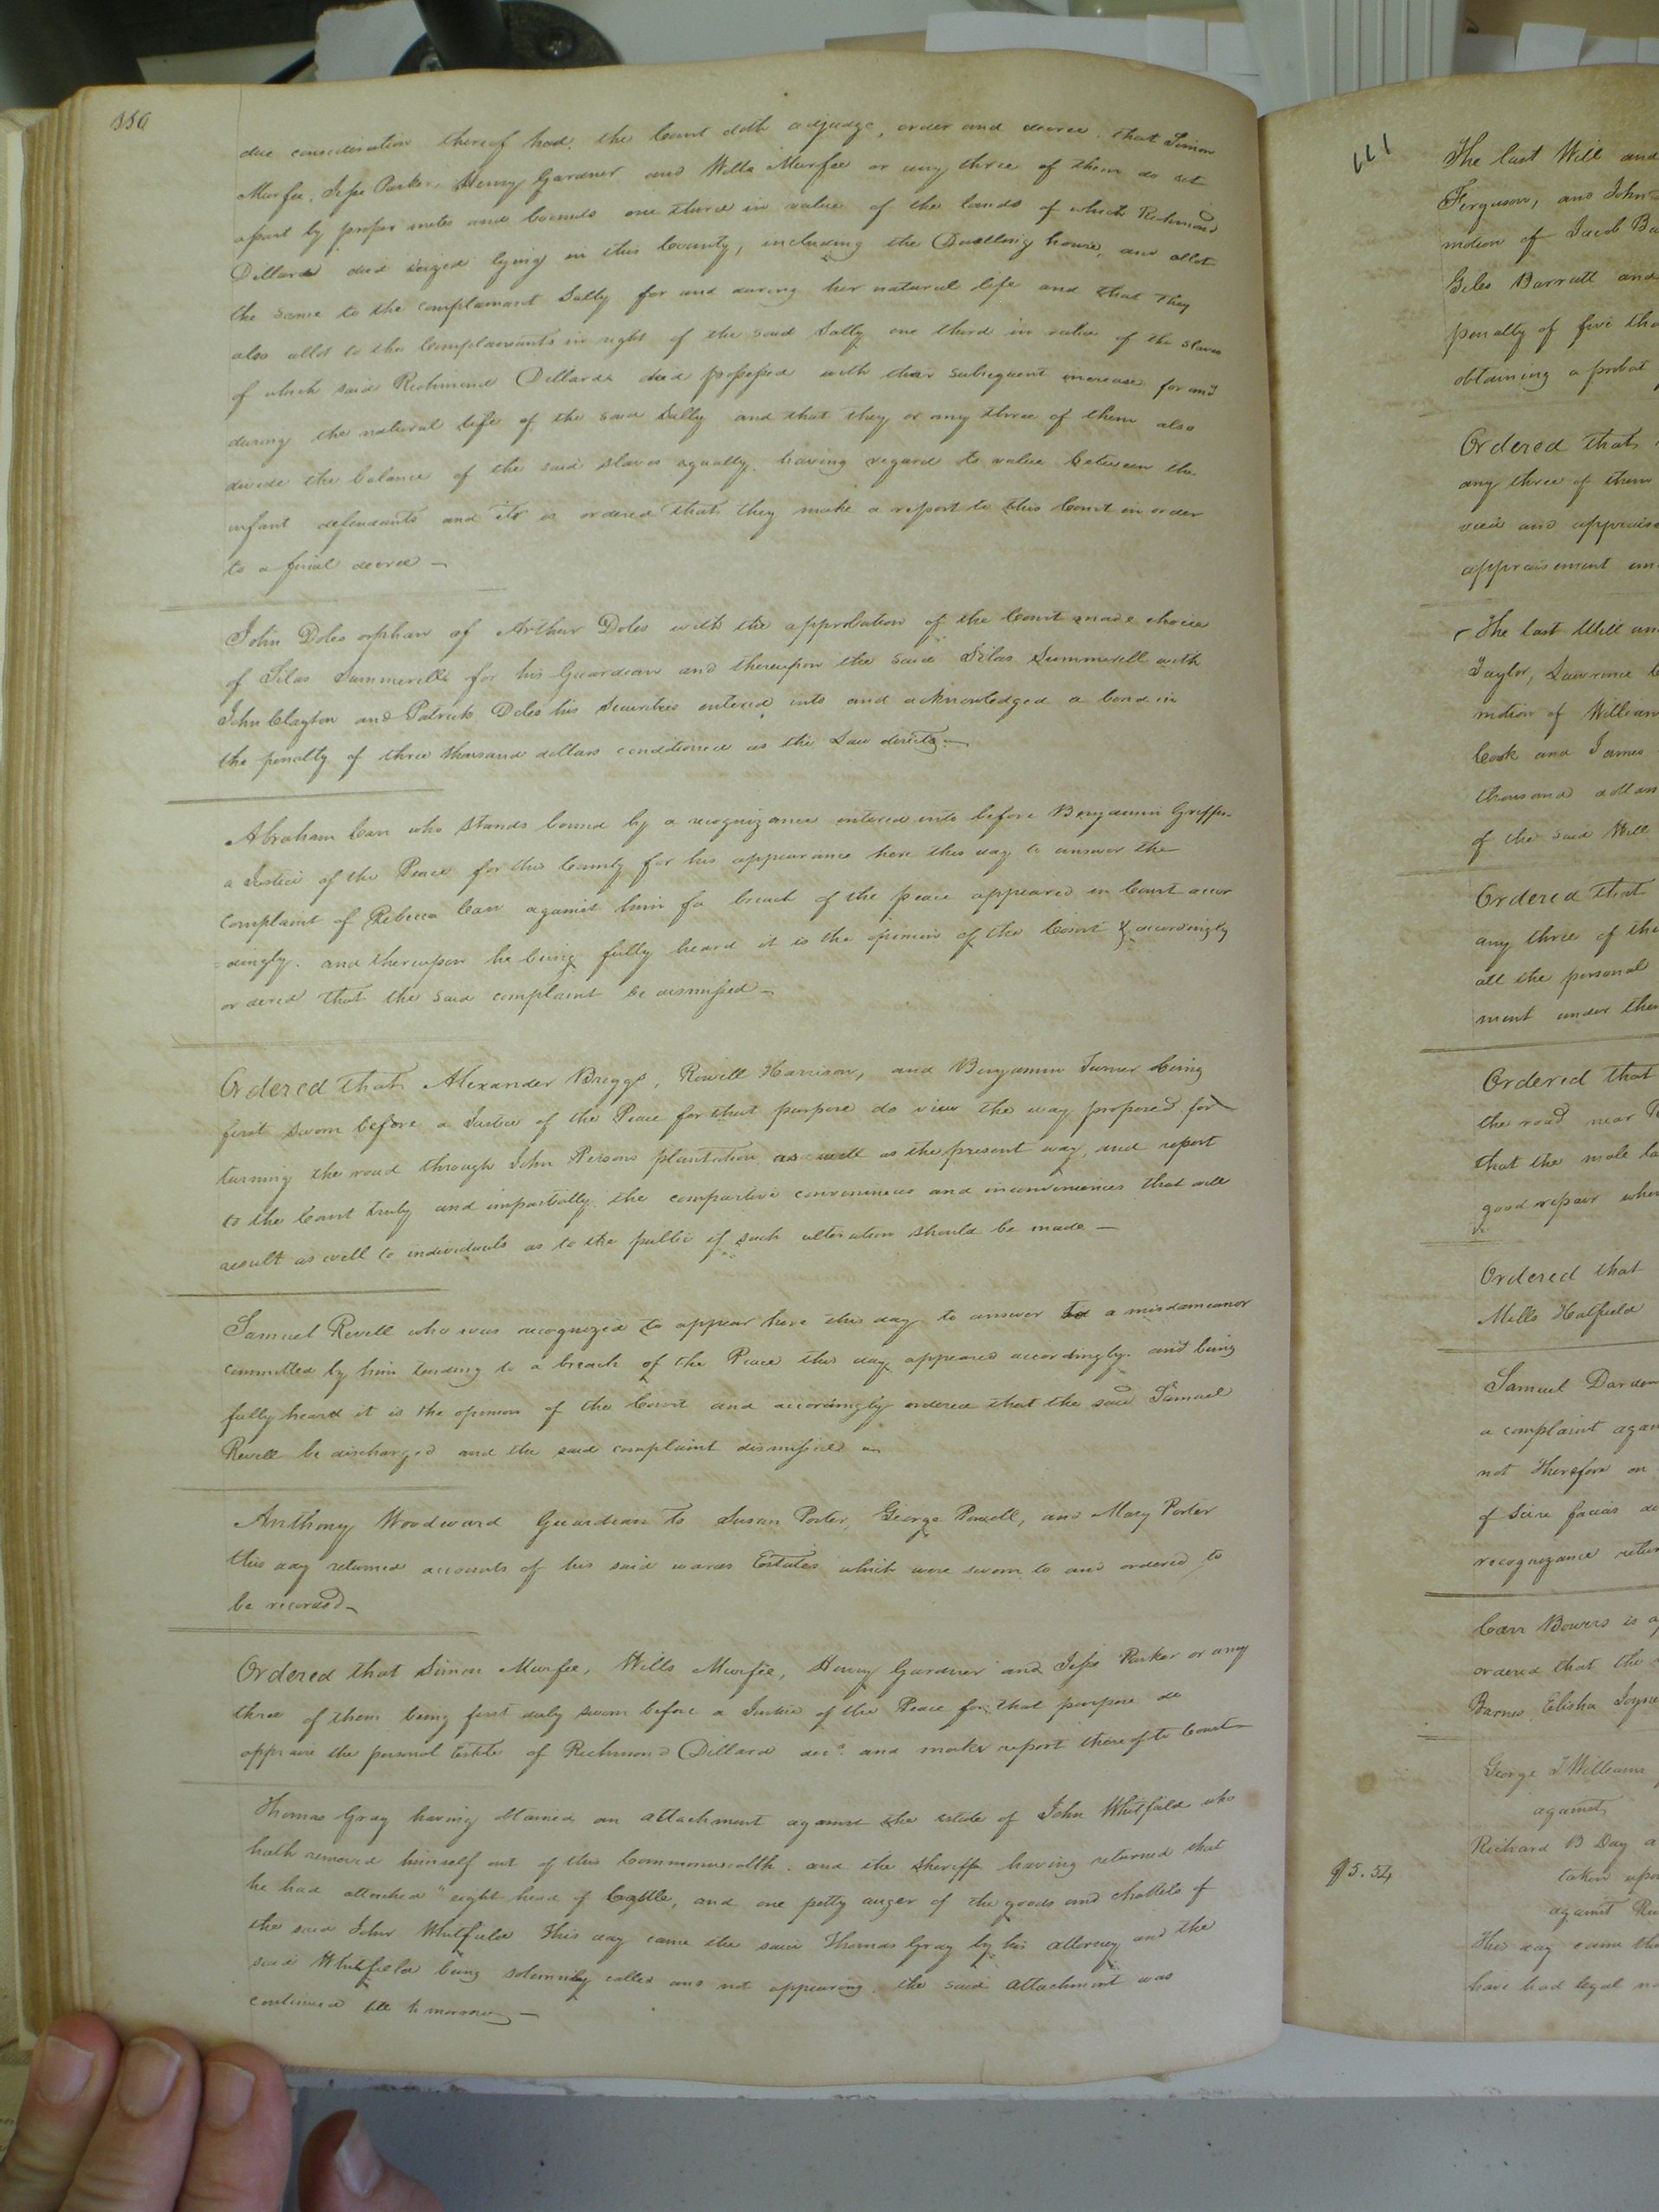 due consideration thereof had, the Court doth adjudge, order and decree that Simon
Murfee, Jesse Parker, Henry Gardner and Wills Murfee or any three of them do set
apart by proper metes and bounds one third in value of the lands of which Richmond
Dillard died seized lying in this County, including the Dwelling house, and allot
the same to the complainant Sally for and during her natural life and that they
also allot to the Complainants in right of the said Sally one third in value of the slaves
of which said Richmond Dillard died possessed with their subsequent increase for and
during the natural life of the said Sally and that they or any three of them also
devide the balance of the said slaves equally having regard to value between the
infant defendants and it is ordered that they make a report to this Court in order
to a final decree —
John Doles orphan of Arthur Doles with the approbation of the Court made choice
of Silas Summerell for his Guardian and thereupon the said Silas Summerell with
John Clayton and Patrick Doles his Securities entered into and acknowledged a bond in
the penalty of three thousand dollars conditioned as the Law directs —
Abraham Carr who stands bound by a recognizance entered into before Benjamin Griffin
a Justice of the Peace for this County for his appearance here this day to answer the
complaint of Rebecca Carr against him for breach of the peace appeared in Court accor
=dingly. and thereupon he being fully heard it is the opinion of the Court & accordingly
ordered that the said complaint be dismissed —
Ordered that Alexander Briggs, Rowell Harrison, and Benjamin Turner being
first sworn before a Justice of the Peace for that purpose do view the way proposed for
turning the road through John Persons plantation as well as the present way and report
to the Court truly and impartially the comparative conveniences and inconveniences that will
result as well to individuals as to the public if such alteration should be made —
Samuel Revell who was recognized to appear here this day to answer to a misdemeanor
committed by him tending to a breach of the Peace this day appeared accordingly and being
fully heard it is the opinion of the Court and accordingly ordered that the said Samuel
Revell be discharged and the said complaint dismissed —
Anthony Woodward Guardian to Susan Porter, George Powell, and Mary Porter
this day returned accounts of his said wards Estates which were sworn to and ordered to
be recorded —
Ordered that Simon Murfee, Wills Murfee, Henry Gardner and Jesse Parker or any
three of them being first duly sworn before a Justice of the Peace for that purpose do
appraise the personal Estate of Richmond Dillard decd. and make report thereof to Court
Thomas Gray having obtained an attachment against the estate of John Whitfield who
hath removed himself out of this Commonwealth. and the Sheriff having returned that
he had attached "eight head of Cattle, and one petty auger of the goods and chattels of
the said John Whitfield This day came the said Thomas Gray by his attorney and the
said Whitfield being solemnly called and not appearing the said attachment was
continued till tomorrow —
The last Will and
Ferguson, and John
motion of Jacob Ba
Giles Barrett and
penalty of five tho
obtaining a probat
Ordered that
any three of them
view and appraise
appraisement un
The last Will an
Taylor, Lawrence
motion of William
Cook and James
thousand dollars
of the said Will
Ordered that
any three of the
all the personal
ment under the
Ordered that
the road near
that the male la
good repair whe
Ordered that
Mills Hatfield
Samuel Darden
a complaint again
not Therefore on
of Scire facias
recognizance retur
Carr Bowers is a
ordered that the
Barnes Elisha Joyne
George J Williams
against
Richard B Day a
$5.54
taken upon
against Ri
This day came the
have had legal no